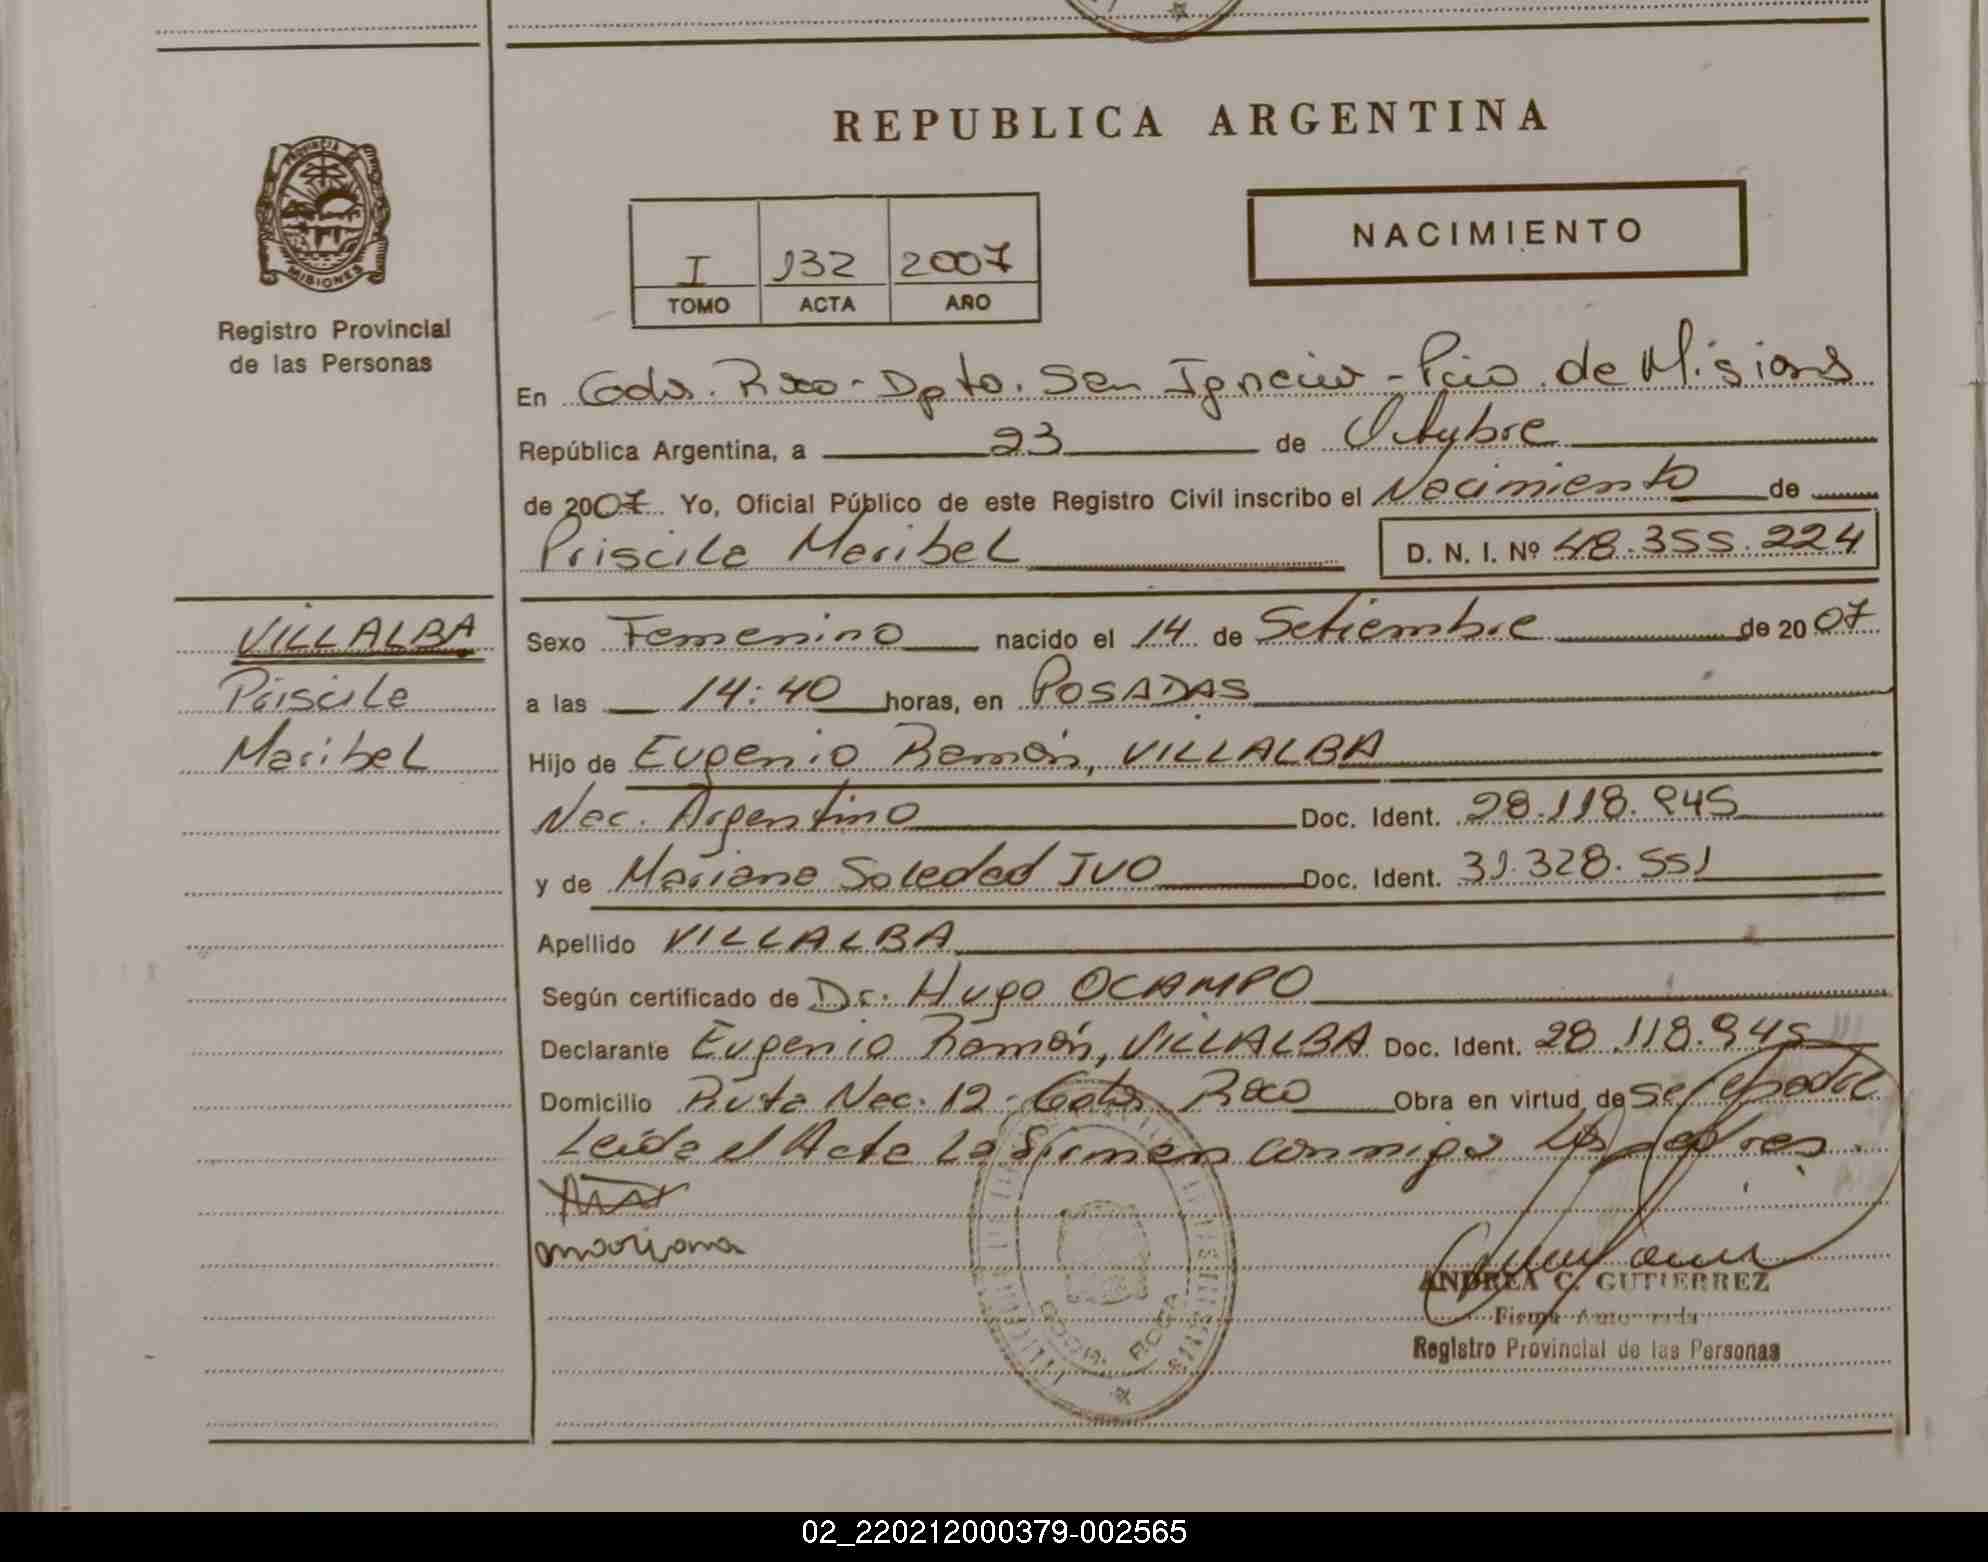 REPUBLICA ARGENTINA
PROVINCIA DE
MISIONES
Registro Provincial
de las Personas
NACIMIENTO
I 132 2007
TOMO ACTA AÑO
En Gdor. Roca - Dpto. San Ignacio - Pcia. de Misiones
República Argentina, a 23 de Octubre
de 2007 Yo, Oficial Público de este Registro Civil inscribo el Nacimiento de
Priscila Maribel D. N. I. Nº 48.355.224
VILLALBA
Priscila
Maribel
Sexo Femenino nacido el 14 de Setiembre de 2007
a las 14:40 horas, en POSADAS
Hijo de Eugenio Ramón, VILLALBA
Nac. Argentino Doc. Ident. 28.118.945
y de Mariana Soledad JUO Doc. Ident. 31.328.551
Apellido VILLALBA
Según certificado de Dr. Hugo OCAMPO
Declarante Eugenio Ramón, VILLALBA Doc. Ident. 28.118.945
Domicilio Ruta Nac. 12 - Gdor. Roca Obra en virtud de
Leída el Acta La firman conmigo Los padres.
mariana
GDOR. ROCA
ANDREA C. GUTIERREZ
Firma Autorizada
Registro Provincial de las Personas
02_220212000379-002565